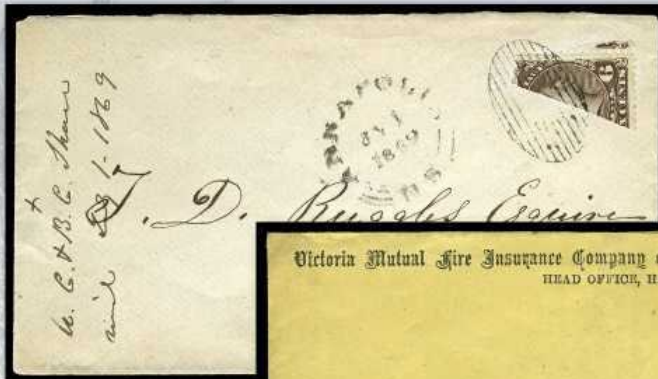 & B. C. Shaw
1869
ANNAPOLIS
JY 1
1869
N S
6
CENTS
T. D. Ruggles Esquire
Victoria Mutual Fire Insurance Company
HEAD OFFICE, H